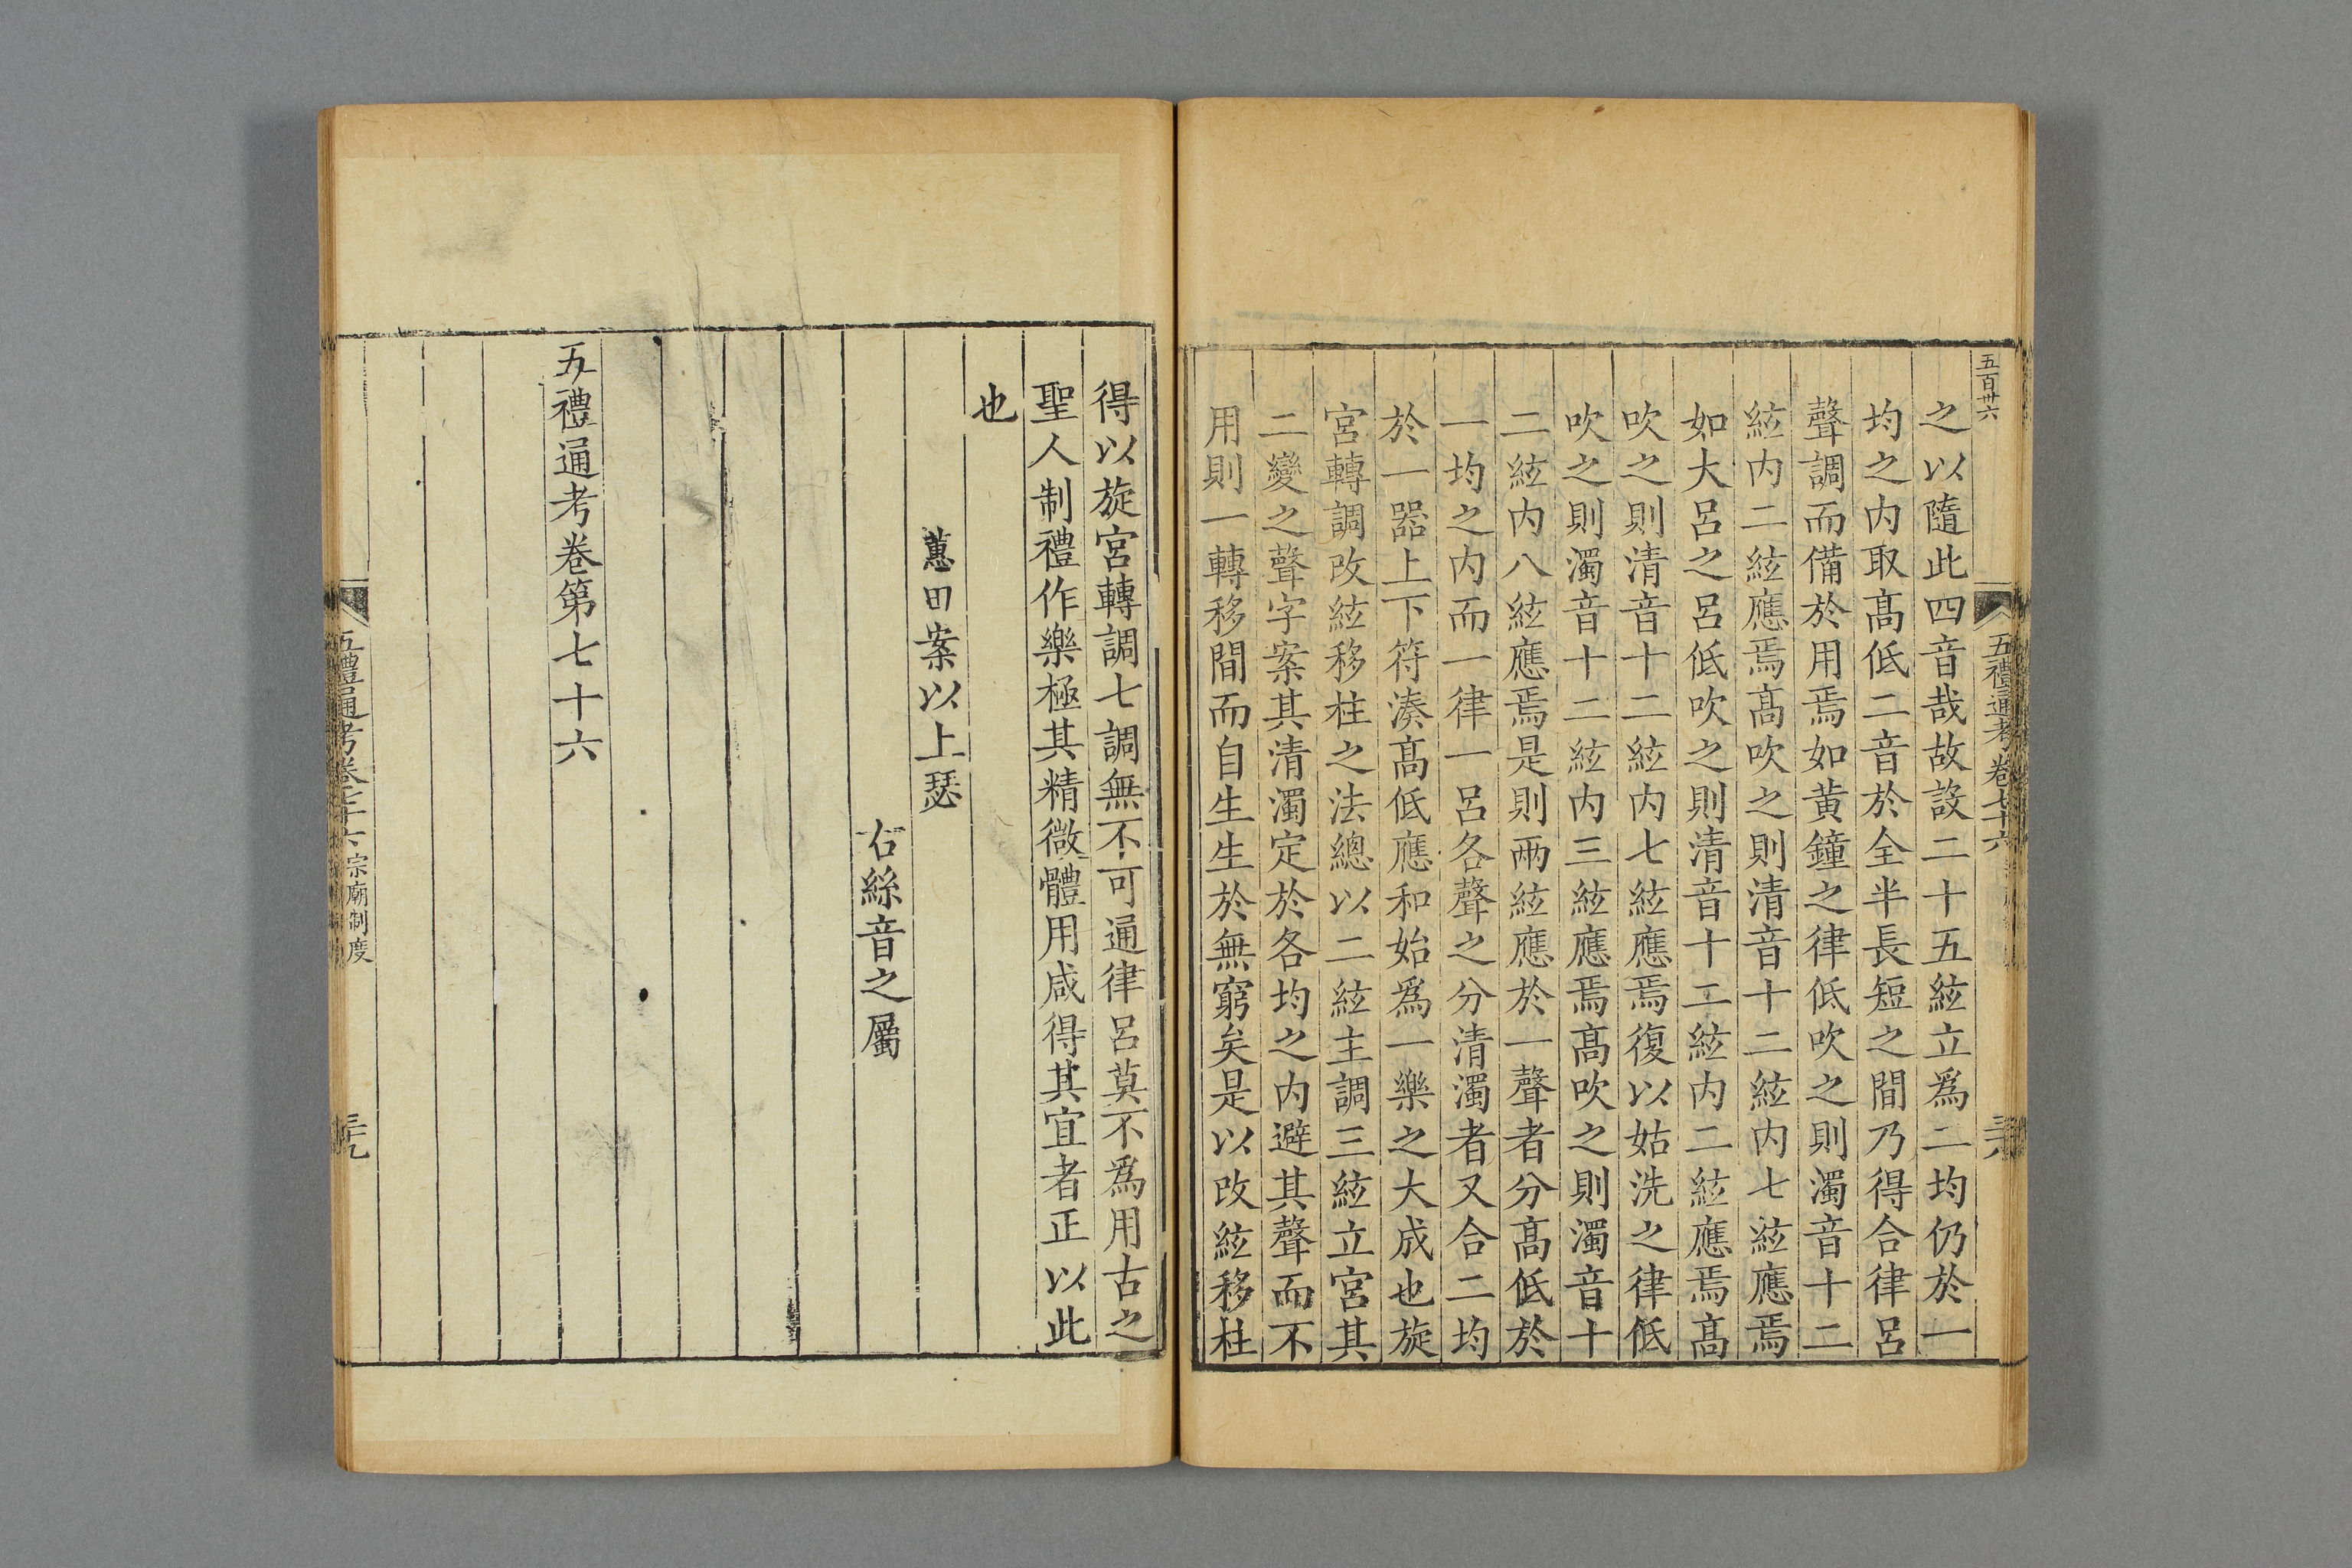 五百卅六
五禮通考卷七十六
之以隨此四音哉故設二十五絃立爲二均仍於一
均之内取髙低二音於全半長短之間乃得合律呂
聲調而備於用焉如黄鐘之律低吹之則濁音十二
絃内二絃應焉髙吹之則清音十二絃内七絃應焉
如大呂之呂低吹之則清音十二絃内二絃應焉髙
吹之則清音十二絃内七絃應焉復以姑洗之律低
吹之則濁音十二絃内三絃應焉髙吹之則濁音十
二絃内八絃應焉是則兩絃應於一聲者分髙低於
一均之内而一律一呂各聲之分清濁者又合二均
於一器上下符湊髙低應和始爲一樂之大成也旋
宮轉調改絃移柱之法總以二絃主調三絃立宮其
二變之聲字案其清濁定於各均之内避其聲而不
用則一轉移間而自生生於無窮矣是以改絃移柱
得以旋宮轉調七調無不可通律呂莫不爲用古之
聖人制禮作樂極其精微體用咸得其宜者正以此
也
蕙田案以上瑟
右絲音之屬
五禮通考卷第七十六
五禮通考卷七十六 宗廟制度